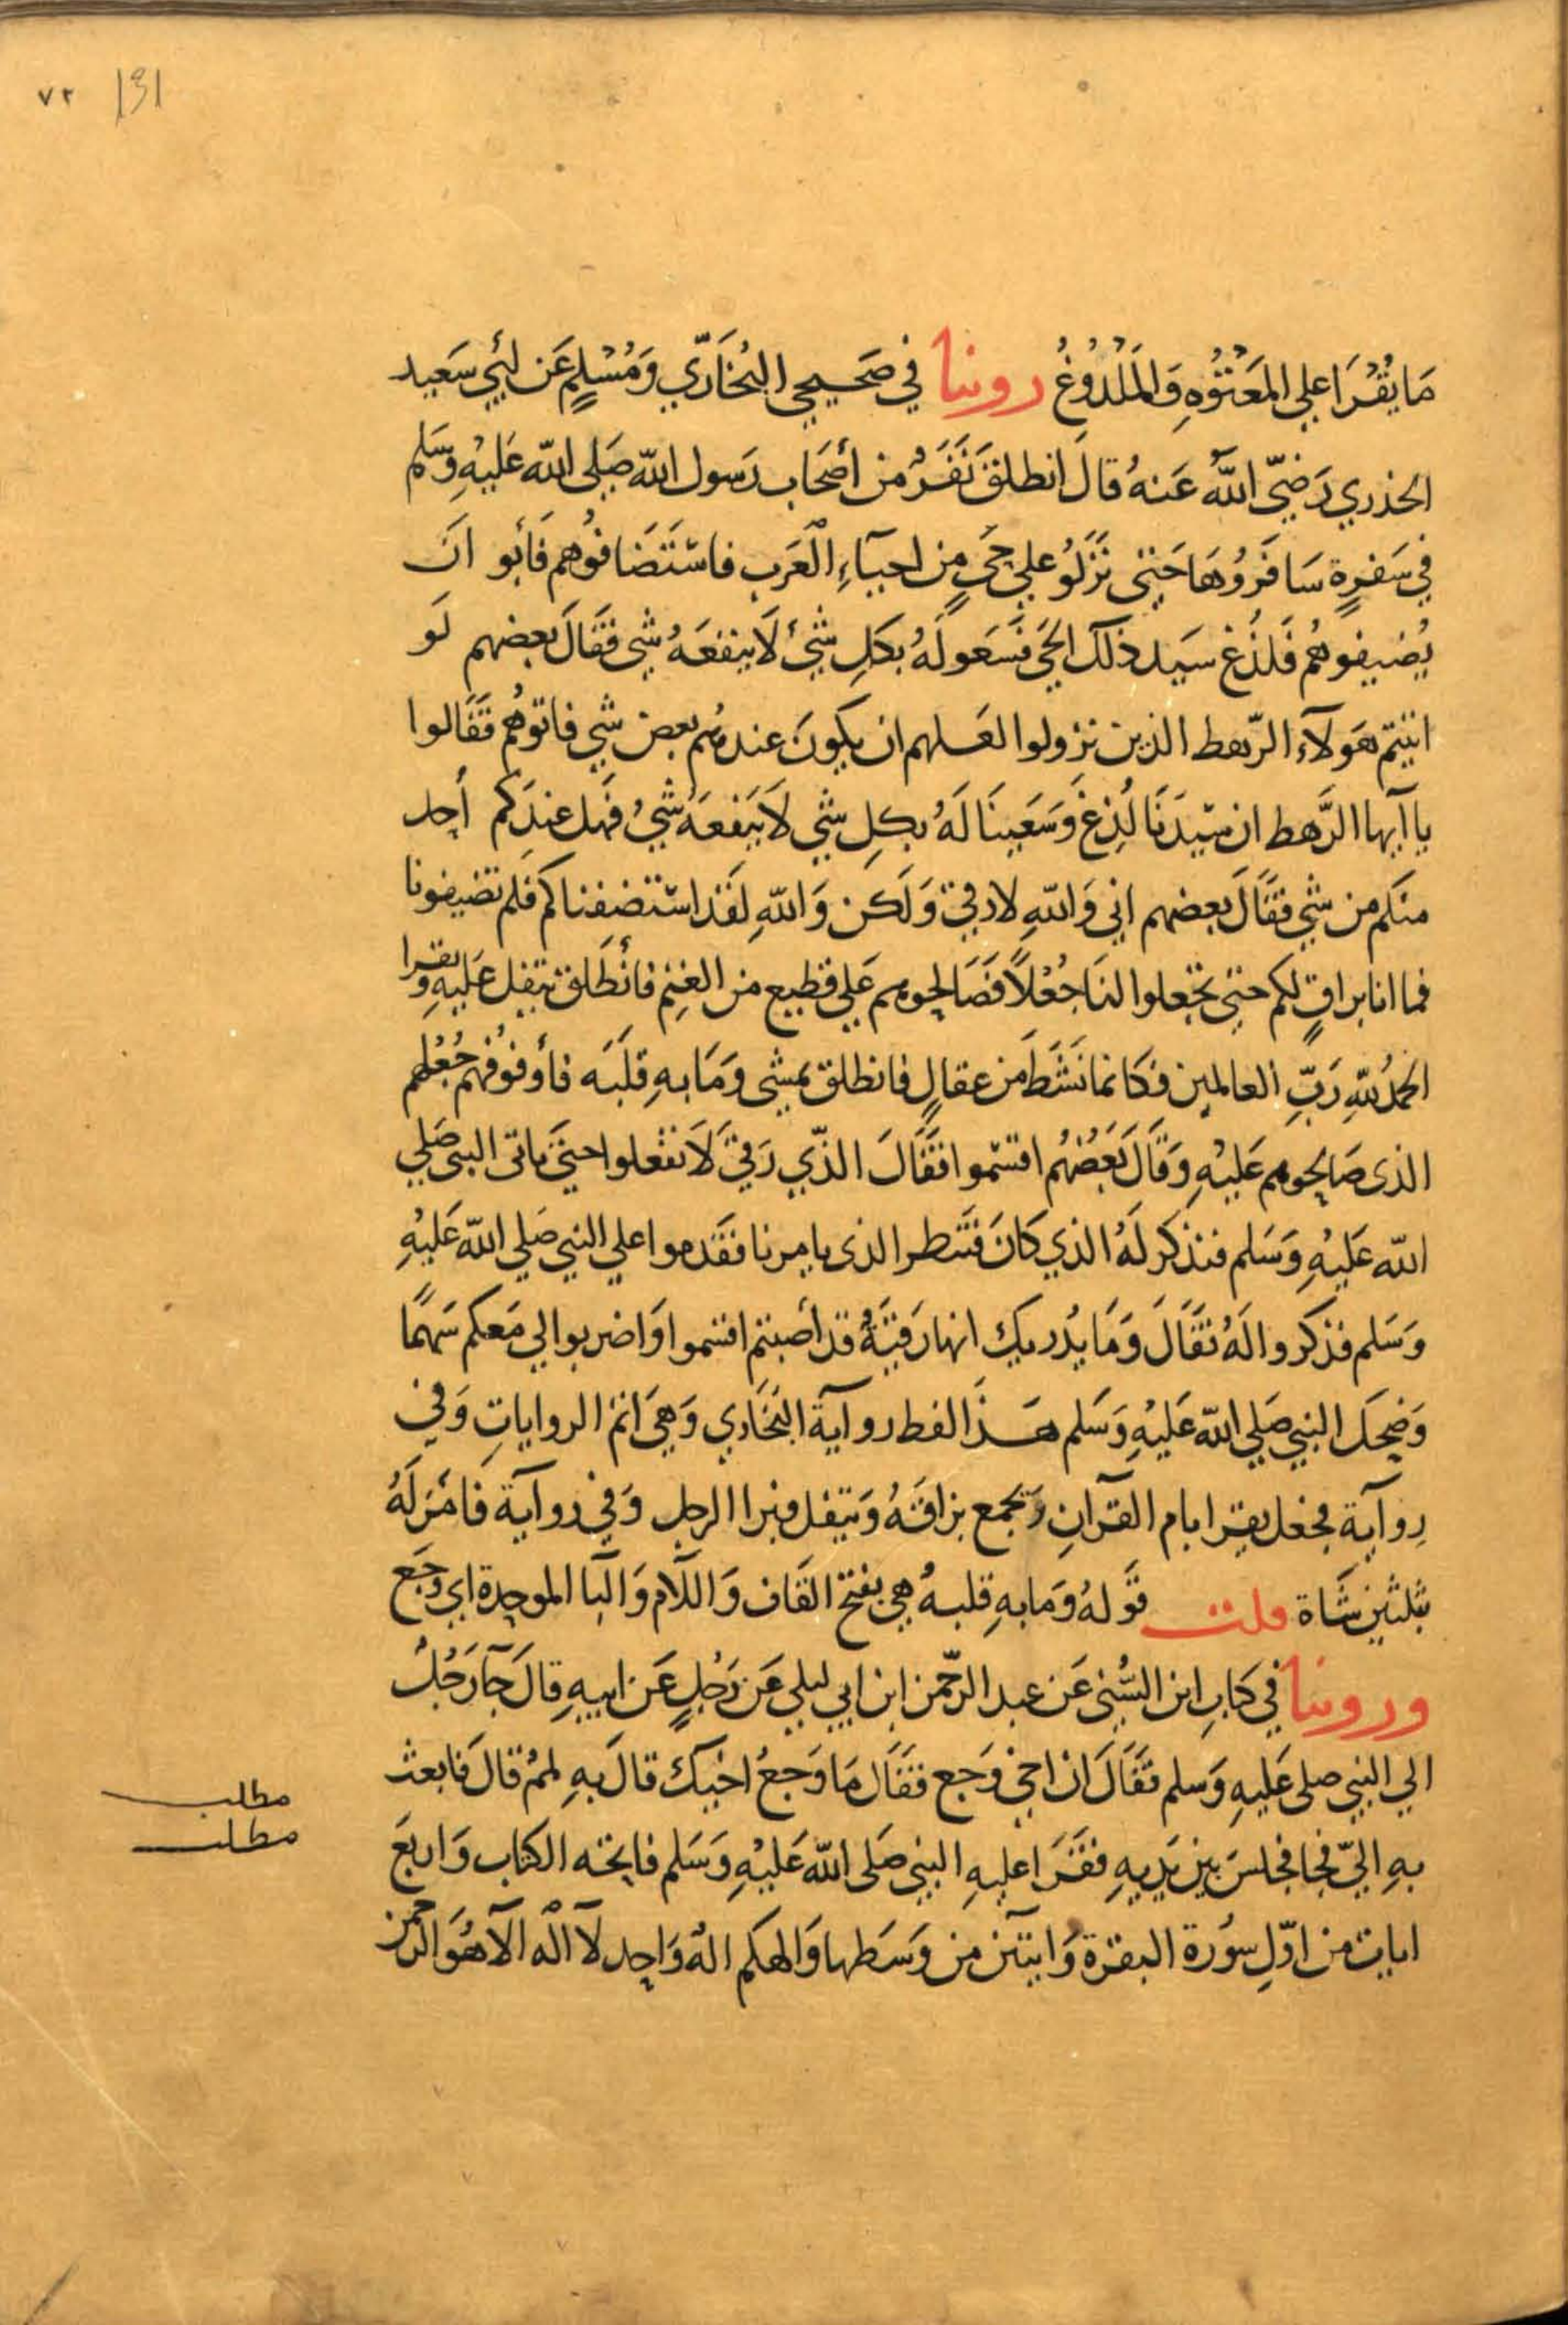 ٧٢ 131
مَا يُقْرَا علي المَعْتُوْهِ وَالمَلْدُوْغُ روينا في صَحيحي البُخَارِّي وَمُسْلِمٍ عَن ابي سَعيد
الخذري رَضيّ اللّٰه عَنهُ قالَ انطلقَ نَفَرٌ من أصحَاب رَسول اللّٰه صَلي اللّٰه عَليْهِ وسَلم
في سَفرةٍ سَافَرُوهَا حَتي نَزَلُو علي حَيٍ مِن احيَآءِ الْعَرب فاسْتَضَافُوهم فَأبو انَ
يُضيفوهُم فَلذُغ سَيد ذلك الحَي فسَعَو لَهُ بكلِ شَيْء لَا ينفعَهُ شي فقَالَ بعضهم لَو
اتيتم هَولآءِ الرّهط الذين نزلوا لعَلهم ان يكونَ عندهُم بعض شي فاتوهُم فقَالوا
يا آيها الرَّهط ان سَيدَنَا لُدِغَ وَسَعَينَا لَهُ بكلِ شَي لَا يَنفعَهُ شيُ فهَل عندَكم أحد
منكم من شَي فقَالَ بعضهم اني وَاللّهِ لارقي وَلكن وَاللّهِ لقَد استضفناكم فَلم تضيفونا
فما انا براقٍ لكم حَتي تجعلوا لنَا جُعْلاً فَصَالحوهم عَلي قطيع من الغنم فانطَلق يتفل عَليهِ وَيقرا
الحمدُ للّهِ رَبِّ العالمين فكانما نَشَطَ مَن عقالٍ فانطلق يمشي وَمَا بهِ قلَبَه فأوفوُهم جُعْلهم
الذي صَالحوهم عَليْهِ وَقَالَ بَعْضُهُم اقتسموا فقَالَ الذّي رَقيَ لَا تفعلوا حتيَ ناتي النبي صَلي
اللّه عَليْهِ وَسَلم فنذكر لَهُ الذي كَانَ فنَنظر الذي يامرنا فقَدموا علي النبي صَلي اللّه عَليْهِ
وَسَلم فذكروا لَهُ فقَالَ وَمَا يُدريك انها رَقيَةُ قد أصَبتم اقتسموا وَاضربوا لي مَعكم سَهمًا
وَضحكَ النبي صَلي اللّه عَليْهِ وَسَلم هَذَا لفظ روآية البُخَاري وَهيَ اتم الرواياتِ وَفي
رِوآية فجعَل يقرا بام القرآنِ وَيجمع بزاقَهُ وَيتفل فبرا الرجل وَفي روآية فَامَرَ لَهُ
بثلثين شَاة قلت قَولهُ وَمَا بهِ قلبهُ هي بفتح القَاف وَاللَآم وَالبَا الموحدة اي وَجَع
وروينا في كتابِ ابن السُّني عَن عبد الرّحمن ابن ابي ليلي عَن رَجُلٍ عَن ابيهِ قالَ جَآ رَجُلٌ
الي النبي صلي عَليهِ وَسلم فقَالَ ان اخي وَجع فقَال مَا وَجعُ اخيك قالَ بهِ لممُ قالَ فَابعث
بهِ اليّ فجا فجلسَ بين يَديهِ فقَرَا عليهِ النبي صَلي اللّه عَليْهِ وَسَلم فاتحَه الكتاب وَاربعَ
ايات من اوّلِ سُورة البقرة وَايتين من وَسَطها وَالهكم الهُ وَاحد لَآ اله الآ هُوَ الرّحمن
مطلب
مطلب